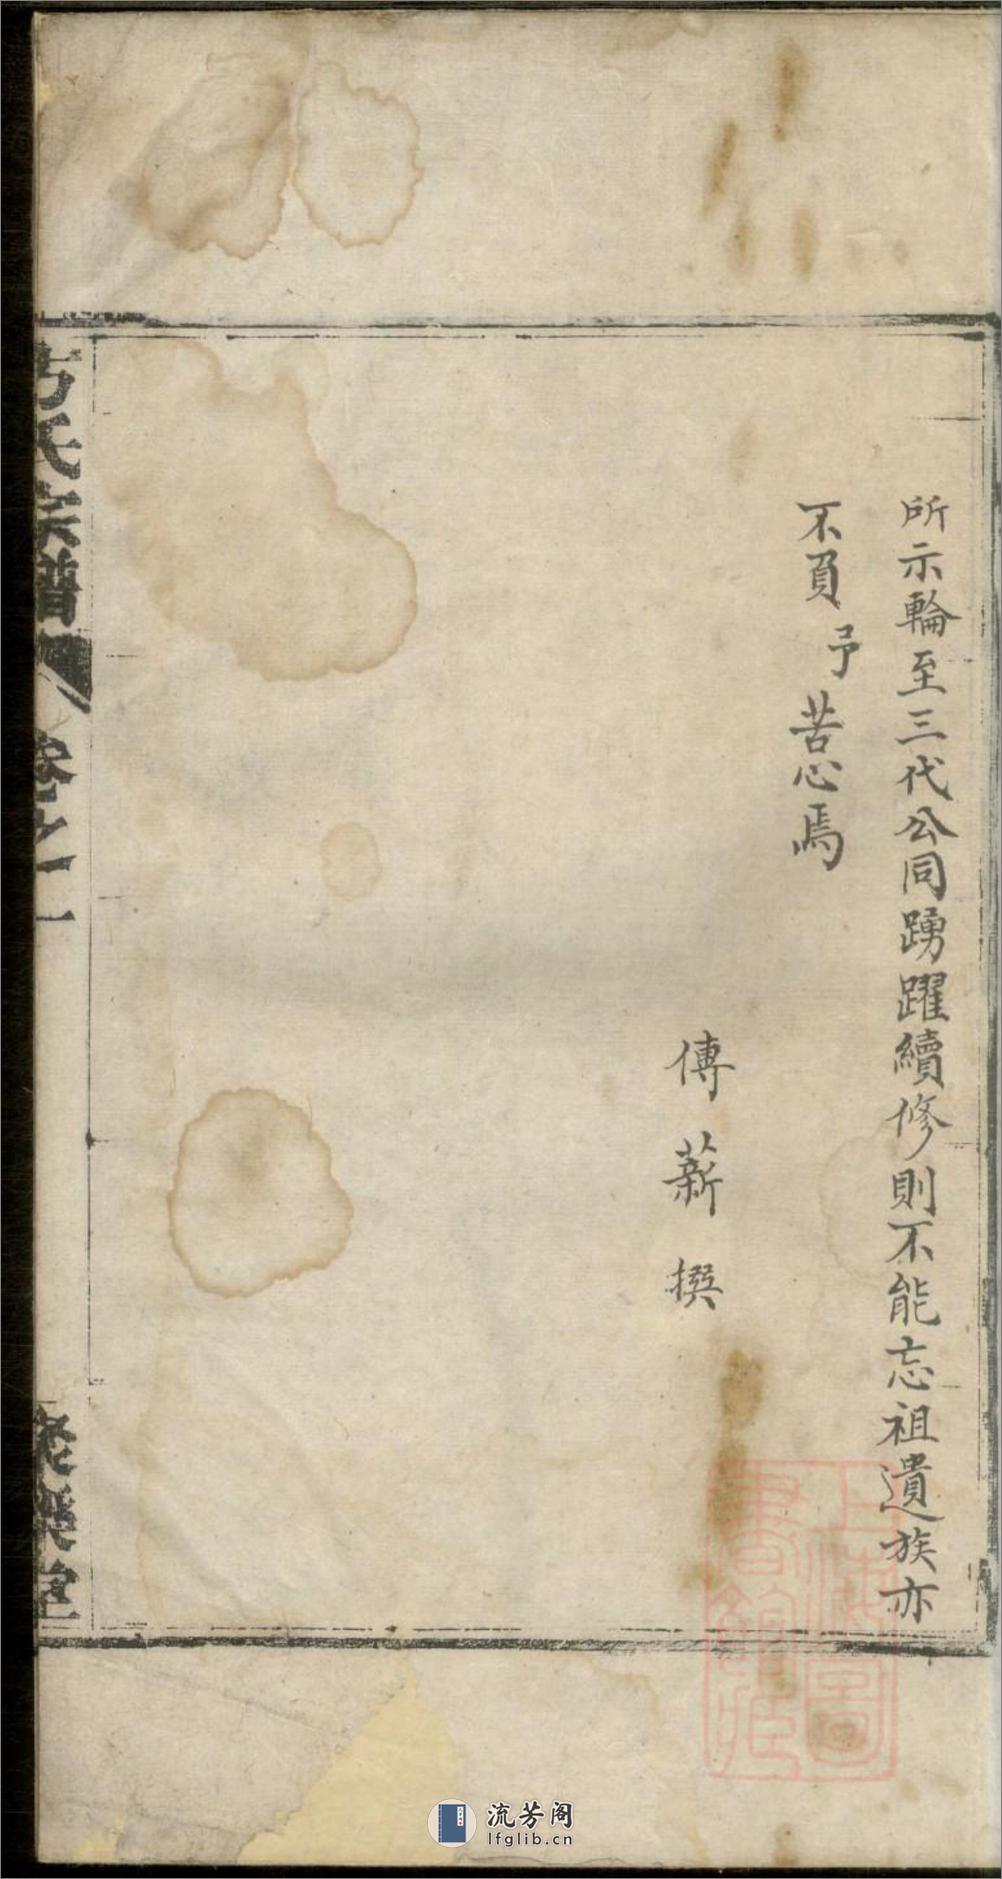 所示輪至三代公同踴躍續修則不能忘祖遺族亦
不負予苦心焉
傳薪撰
氏宗譜
卷之一
堂
上海圖書館藏
流芳阁
lfglib.cn